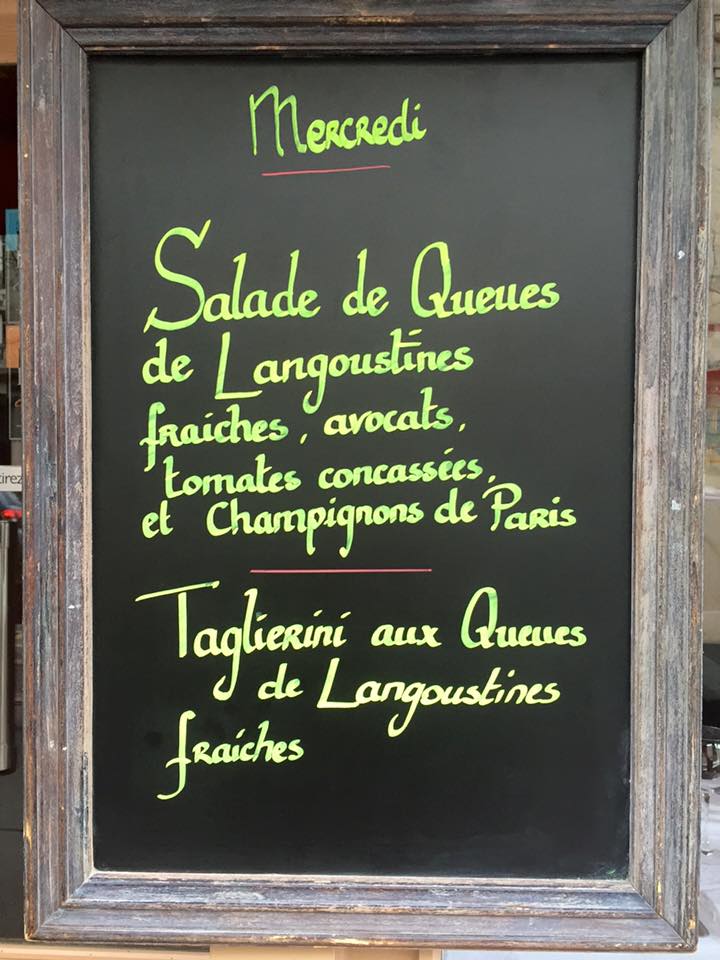 Mercredi
Salade de Queues
de Langoustines
fraiches, avocats,
tomates concassées,
et Champignons de Paris
Taglierini aux Queues
de Langoustines
fraiches
tirez